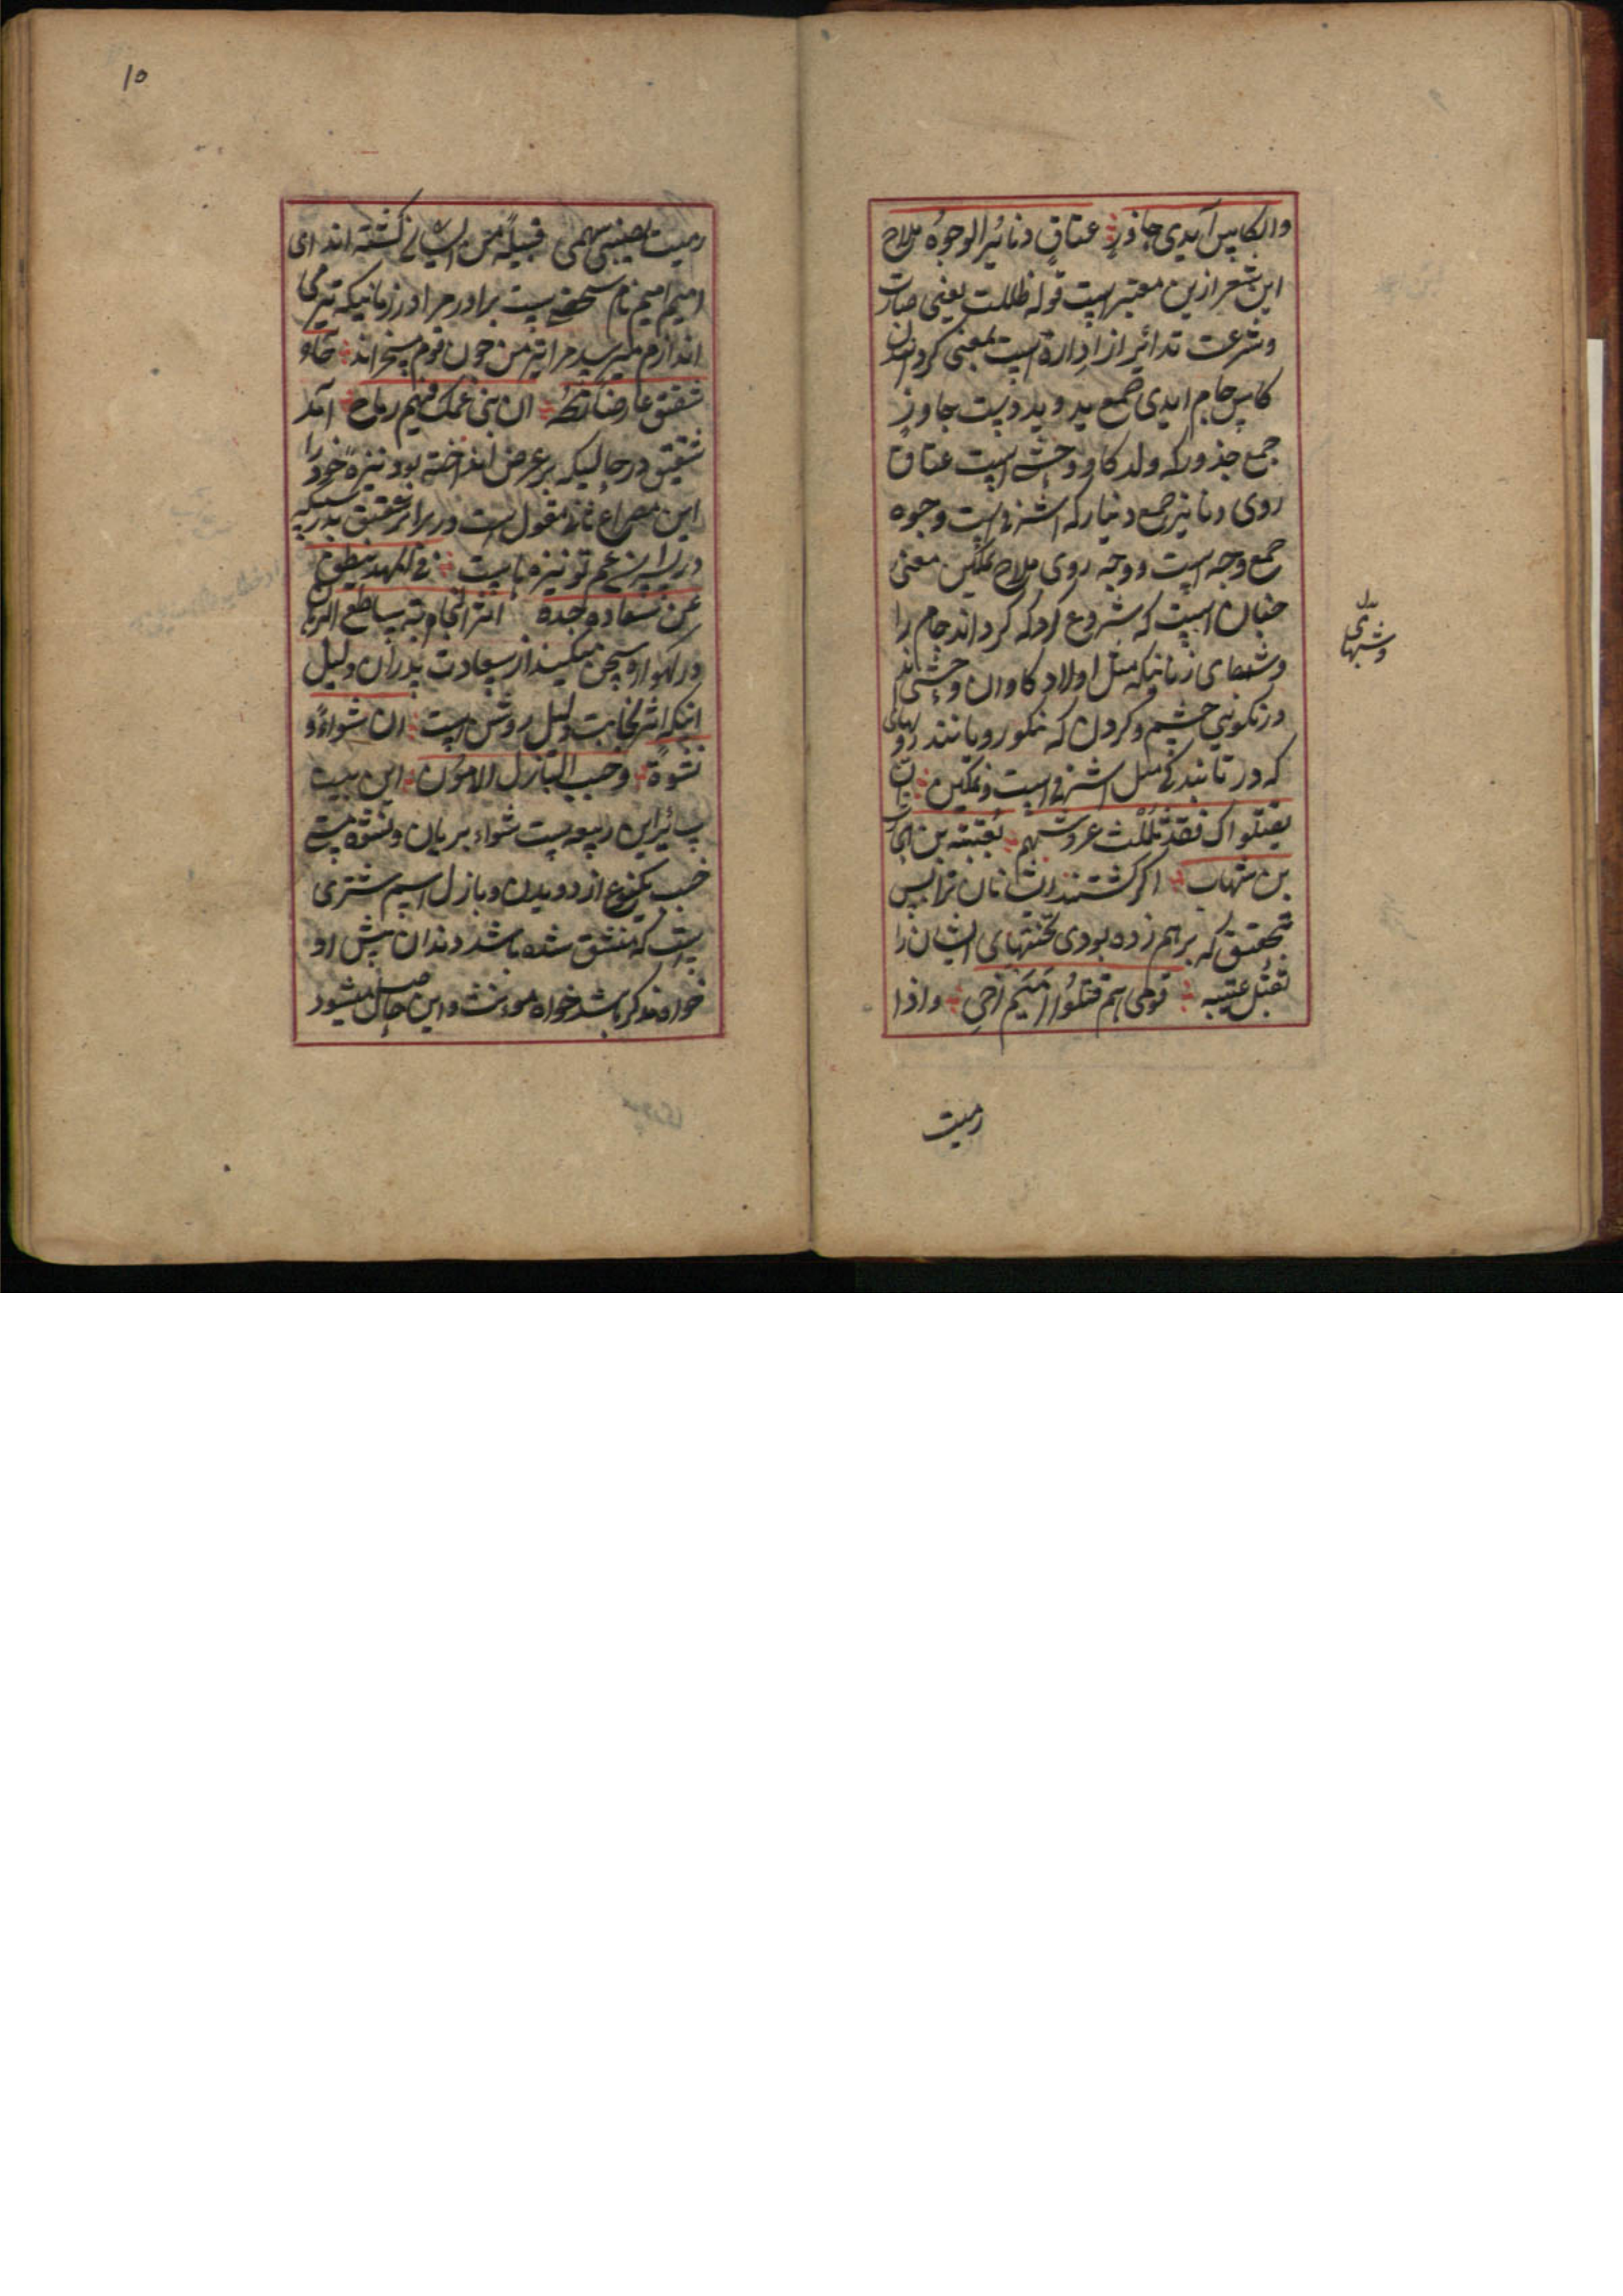 والکاس آیدی جاذر عتاق دنائیر الوجوه ملاح
این شعر ازین معتبر است قوله ظللت یعنی صارت
وشرعت تدائیر از اداره است بمعنی کردانیدن
کاس جام ایدی جمع ید و ید دست جاوذر
جمع جذور که ولد کاو وحشی است عتاق
روی دنانیر جمع دینار که اشرفی است وجوه
جمع وجه است و وجه روی ملاح نمکین معنی
چنان است که شروع کرد که کرداند جام را
وشبهای زمانیکه مثل اولاد کاوان وحشی اند
در نکویی چشم و کردن که نکو رو مانند روهای
که در تابندکی مثل اشرفی است و نمکین ان
یقتلواک فقد ثللت عروشهم بعتیبة بن
بن شهاب اکر کشتند ایشان ترا پس
بتحقیق که برهم زده بودی تختهای ایشان را
بقتل عتیبه قومی هم قتلوا امیم اخی واذا
رمیت
بدل
وشبهای
۱۵
رمیت یصیبنی سهمی قبیله من ایشان کشته اند ای
امیم امیم نام شخصیست برادر مرا در زمانیکه تیر می
اندازم میرسد مرا تیر من چون قوم اند جاء
شقیق عارضا رمحه ان بنی عمک فیهم رماح آمد
شقیق در حالیکه بر عرض انداخته بود نیزه خود را
این مصراع نان مقول است در برابر شقیق بدرستیکه
در پسران عم تو نیزه هاست فی المهد ینطق
عن سعادة جده اثر النجابة ساطع البرهان
در کهواره سخن میکند از سعادت پدران دلیل
اینکه اثر نجابت دلیل روشن است ان شواء و
نشوة وخبب البازل الامون این بیت
ابن ربیعه است شواء بریان ونشوه مستی
خبب یکنوع از دویدن و بازل اسم شتری
است که منشق شده باشد دندان پیش او
خواه مذکر باشد خواه مونث و این حاصل میشود